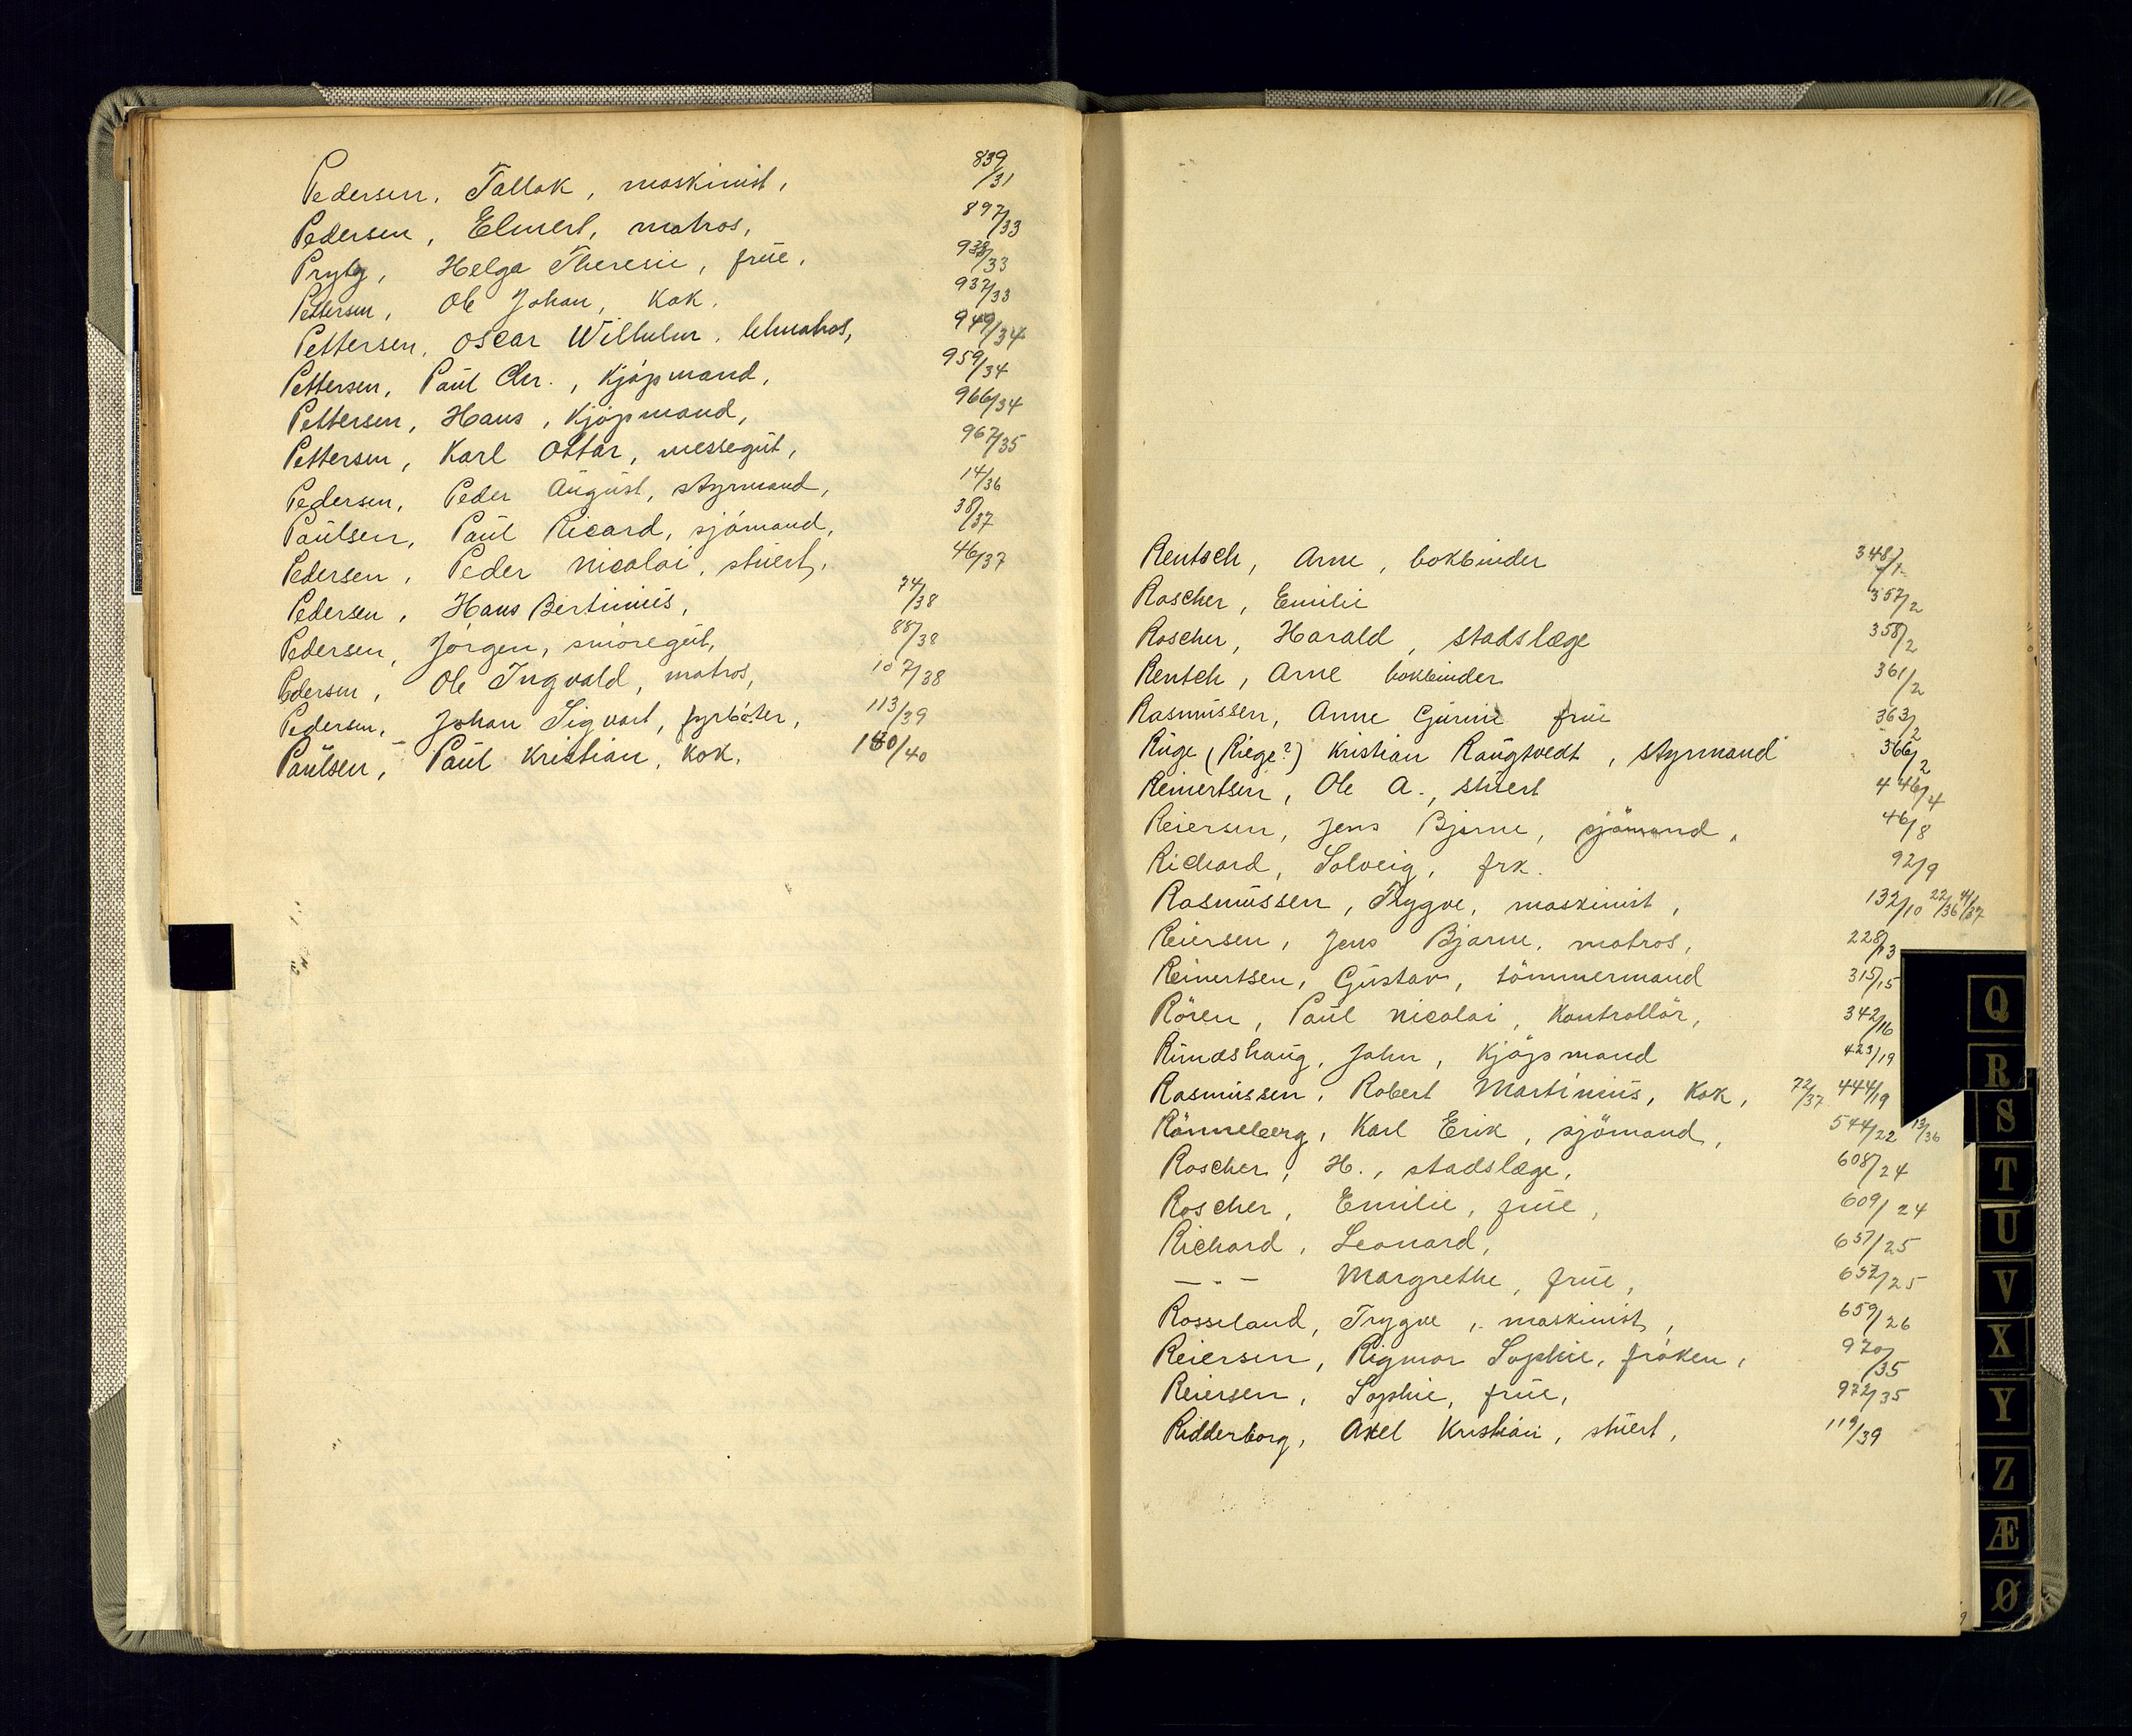 Pedersen, Tallak, maskinist, 839/31
Pedersen, Elmert, matros, 897/33
Prytz, Helga Theresie, frue, 938/33
Pettersen, Ole Johan, Kok. 937/33
Pettersen, Oscar Wilhelm, letmatros, 949/34
Pettersen, Paul Chr., Kjøpmand, 959/34
Pettersen, Hans, Kjøpmand, 966/34
Pettersen, Karl Ottar, messegut, 967/35
Pedersen, Peder August, styrmand, 14/36
Paulsen, Paul Ricard, sjømand, 38/37
Pedersen, Peder Nicolai, stuert, 46/37
Pedersen, Hans Bertinius, 74/38
Pedersen, Jørgen, smøregut, 88/38
Pedersen, Ole Ingvald, matros, 107/38
Pedersen, Johan Sigvart, fyrbøter, 113/39
Paulsen, Paul Kristian, Kok, 180/40
Rentsch, Arne, bokbinder 348/1
Roscher, Emilie 357/2
Roscher, Harald, stadslæge 358/2
Rentch, Arne bokbinder 361/2
Rasmussen, Anne Gurine frue 363/2
Ruge (Riege?) Kristian Raugtvedt, styrmand 366/2
Reinertsen, Ole A., stuert 446/4
Reiersen, Jens Bjarne, sjömand, 46/8
Richard, Solveig, frk. 92/9
Rasmussen, Trygve, maskinist, 132/10 22/36 44/37
Reiersen, Jens Bjarne, matros, 228/13
Reinertsen, Gustav, tömmermand 315/15
Rören, Paul Nicolai, Kontrollör, 342/16
Rundshaug, John, Kjöpmand 423/19
Rasmussen, Robert Martinius, Kok, 72/37 444/19
Rönneberg, Karl Erik, sjömand, 544/22 13/36
Roscher, H., stadslæge, 608/24
Roscher, Emilie, frue, 609/24
Richard, Leonard, 651/25
— " — Margrethe, frue, 652/25
Rosseland, Trygve, maskinist, 659/26
Reiersen, Rigmor Sophie, frøken, 970/35
Reiersen, Sophie, frue, 972/35
Ridderborg, Axel Kristian, stuert, 119/39
Q
R
S
T
U
V
X
Y
Z
Æ
Ø